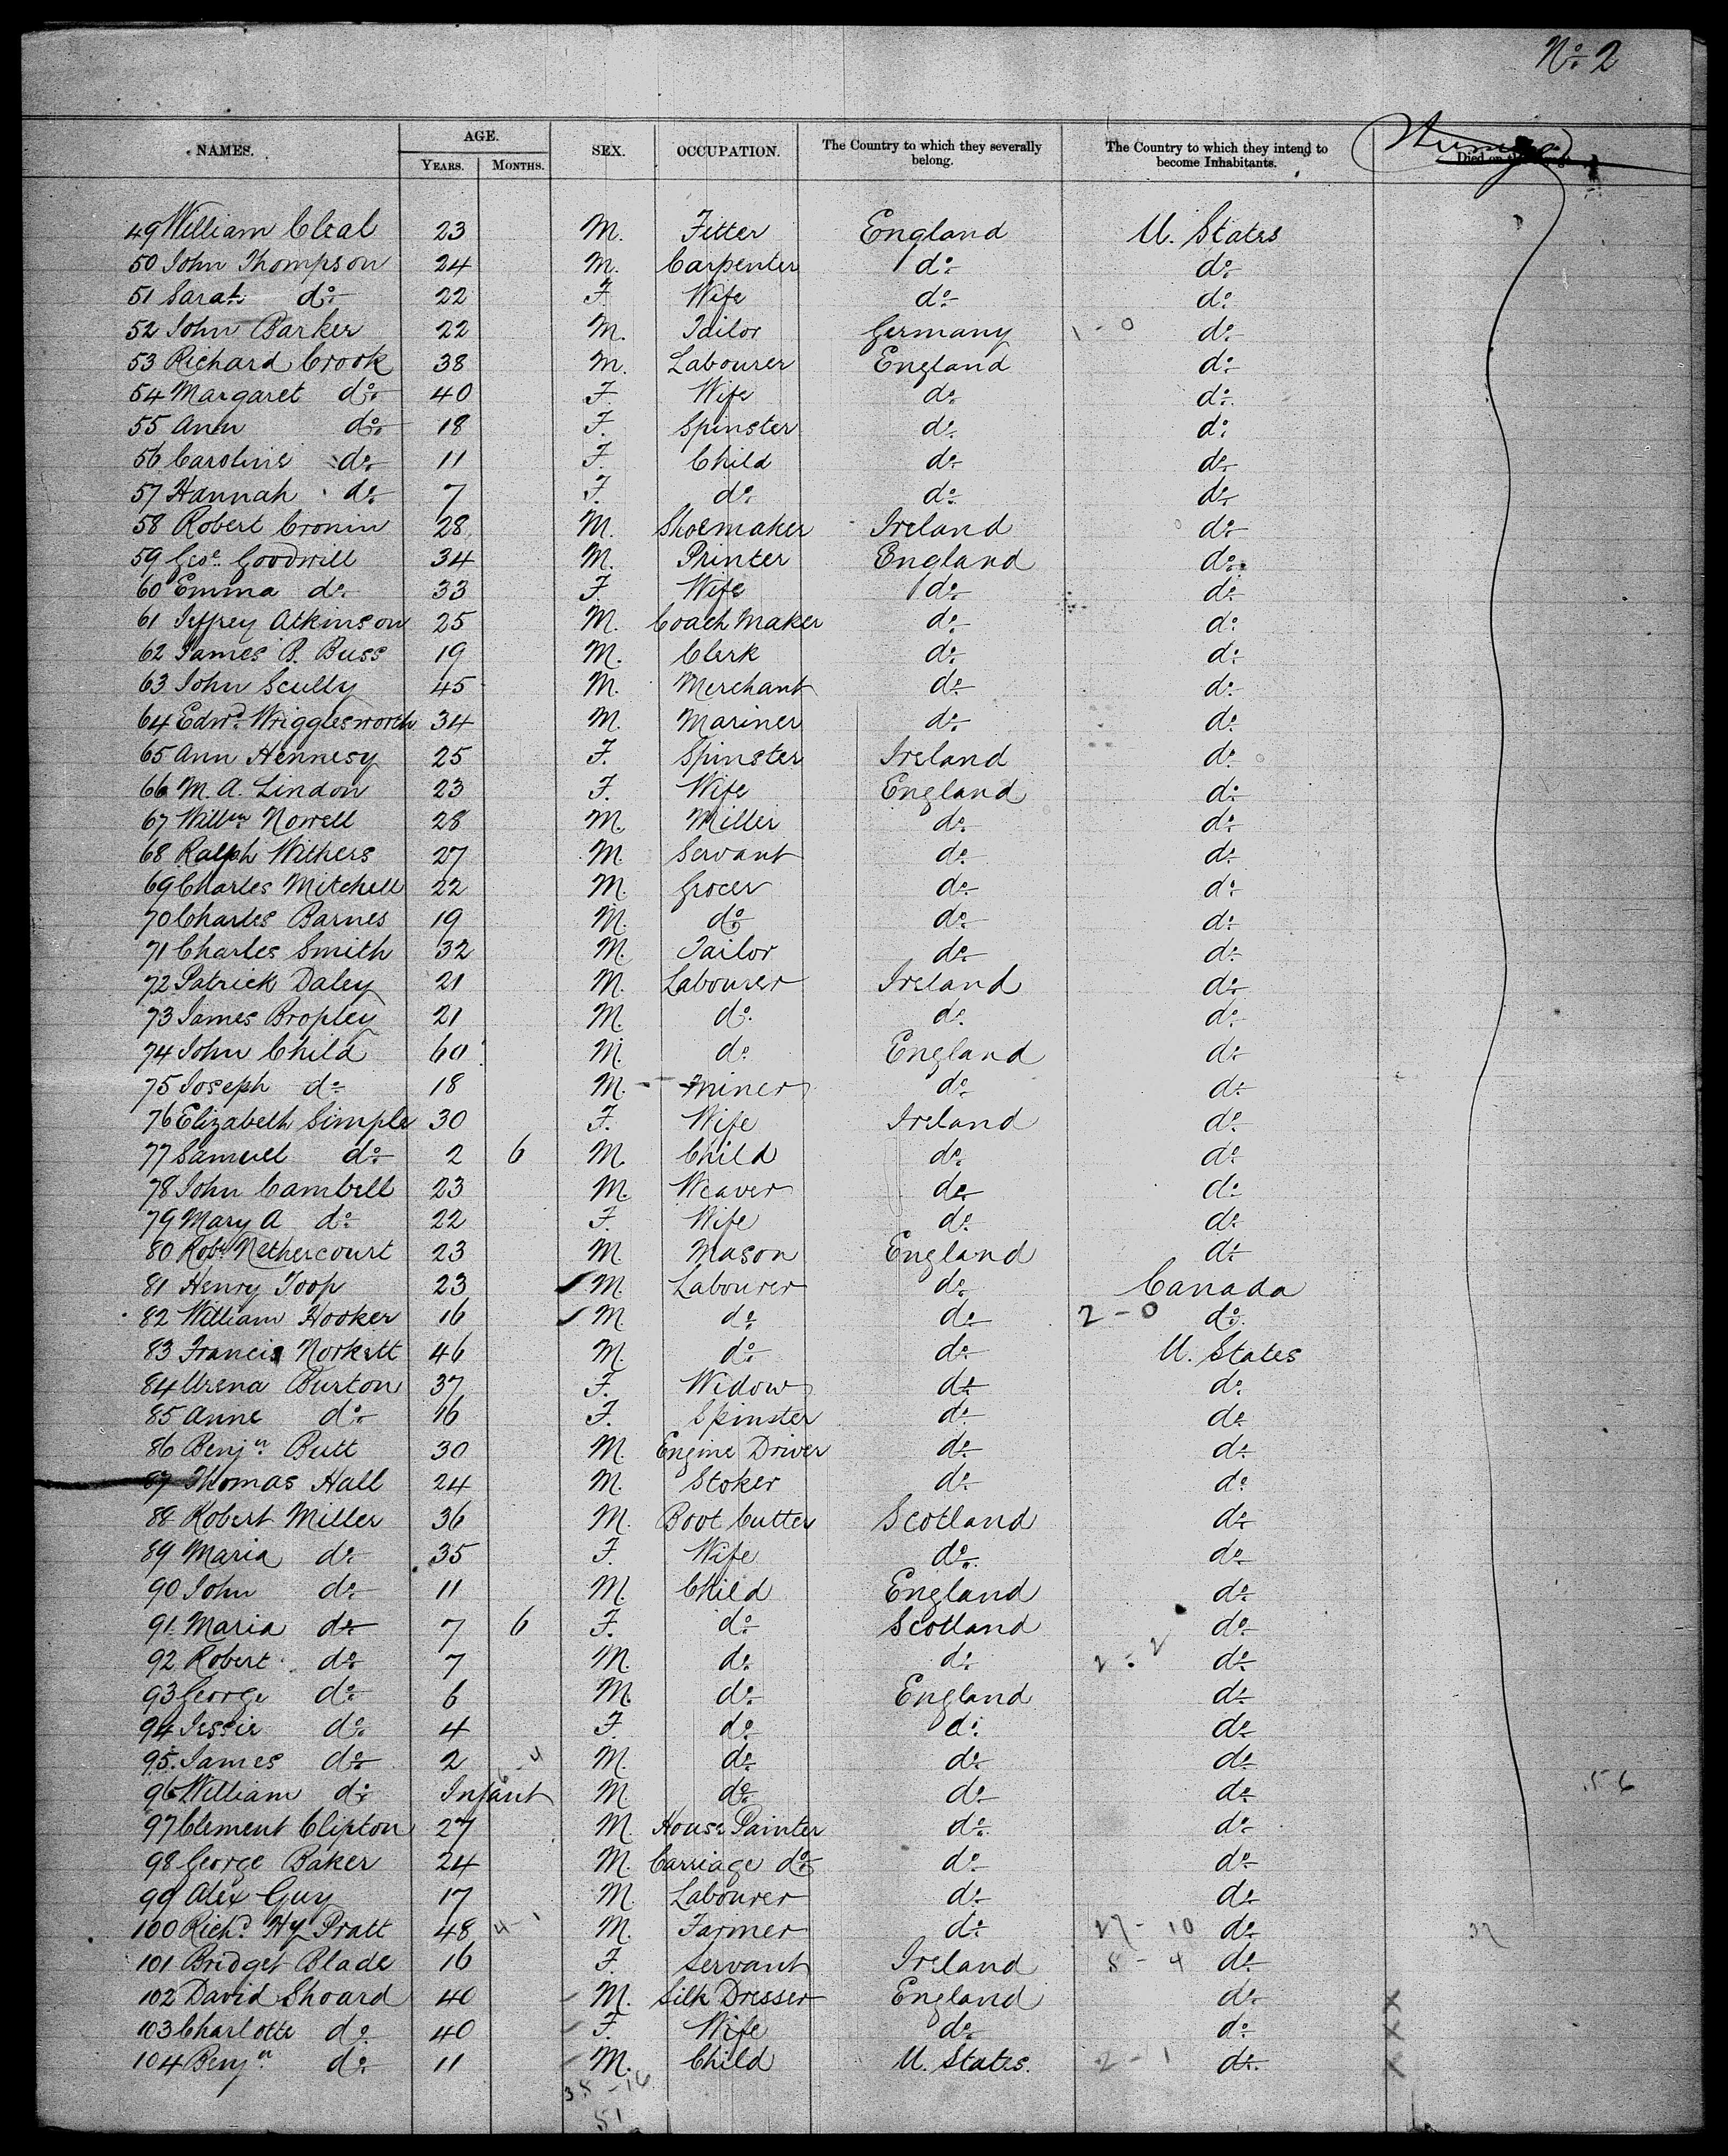 No. 2
NAMES. AGE. SEX. OCCUPATION. The Country to which they severally belong. The Country to which they intend to become Inhabitants. Died on the
YEARS. MONTHS.
49 William Cleal 23 M. Fitter England U. States
50 John Thompson 24 M. Carpenter do. do.
51 Sarah do. 22 F. Wife do. do.
52 John Barker 22 M. Tailor Germany 1-0 do.
53 Richard Crook 38 M. Labourer England do.
54 Margaret do. 40 F. Wife do. do.
55 Ann do. 18 F. Spinster do. do.
56 Caroline do. 11 F. Child do. do.
57 Hannah do. 7 F. do. do. do.
58 Robert Cronin 28 M. Shoemaker Ireland do.
59 Geo. Goodwill 34 M. Printer England do.
60 Emma do. 33 F. Wife do. do.
61 Jeffrey Atkinson 25 M. Coach Maker do. do.
62 James B. Buss 19 M. Clerk do. do.
63 John Scully 45 M. Merchant do. do.
64 Edwd. Wrigglesworth 34 M. Mariner do. do.
65 Ann Hennesy 25 F. Spinster Ireland do.
66 M. A. Lindon 23 F. Wife England do.
67 Willm. Nowell 28 M. Miller do. do.
68 Ralph Withers 27 M. Servant do. do.
69 Charles Mitchell 22 M. Grocer do. do.
70 Charles Barnes 19 M. do. do. do.
71 Charles Smith 32 M. Tailor do. do.
72 Patrick Daley 21 M. Labourer Ireland do.
73 James Bropley 21 M. do. do. do.
74 John Child 60 M. do. England do.
75 Joseph do. 18 M. Miner do. do.
76 Elizabeth Simple 30 F. Wife Ireland do.
77 Samuel do. 2 6 M. Child do. do.
78 John Cambell 23 M. Weaver do. do.
79 Mary A do. 22 F. Wife do. do.
80 Robt. Nethercourt 23 M. Mason England do.
81 Henry Toop 23 M. Labourer do. Canada
82 William Hooker 16 M. do. do. 2-0 do.
83 Francis Norkett 46 M. do. do. U. States
84 Urena Burton 37 F. Widow do. do.
85 Anne do. 16 F. Spinster do. do.
86 Benjn. Butt 30 M. Engine Driver do. do.
87 Thomas Hall 24 M. Stoker do. do.
88 Robert Miller 36 M. Boot Cutter Scotland do.
89 Maria do. 35 F. Wife do. do.
90 John do. 11 M. Child England do.
91 Maria do. 7 6 F. do. Scotland do.
92 Robert do. 7 M. do. do. 2-2 do.
93 George do. 6 M. do. England do.
94 Jessie do. 4 F. do. do. do.
95 James do. 2 M. do. do. do.
96 William do. Infant M. do. do. do. 56
97 Clement Clipton 27 M. House Painter do. do.
98 George Baker 24 M. Carriage do. do. do.
99 Alex Guy 17 M. Labourer do. do.
100 Richd. Hy. Pratt 48 4-1 M. Farmer do. 27-10 do. 37
101 Bridget Blade 16 F. Servant Ireland 8-4 do.
102 David Shoard 40 M. Silk Dresser England do. X
103 Charlotte do. 40 F. Wife do. do. X
104 Benjn. do. 11 M. Child U. States. 2-1 do. X
51